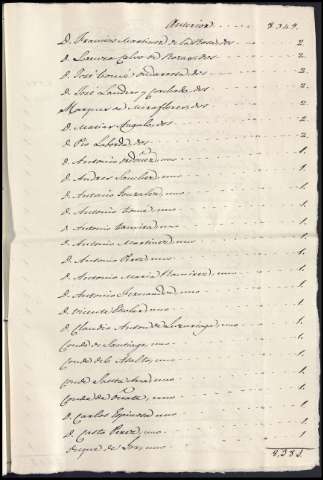 Anterior ..... 4.349.
D. Francisco Martinez de la Rosa, dos 2.
D. Lauro Calvo de Rozas, dos 2.
D. José dos 2.
D. José Landero y Corchado, dos 2.
Marques de Miraflores, dos 2.
D. Matias Angulo, dos 2.
D. Pio Laborda, dos 2.
D. Antonio Ordoñez, uno 1.
D. Andres Sanchez, uno 1.
D. Antonio Gonzalez, uno 1.
D. Antonio uno 1.
D. Antonio uno 1.
D. Antonio Martinez, uno 1.
D. Antonio Perez, uno 1.
D. Antonio Maria Ramirez, uno 1.
D. Antonio Fernandez, uno 1.
D. Vicente uno 1.
D. Claudio Anton de Luzuriaga, uno 1.
Conde de Santiago, uno 1.
Conde de uno 1.
Conde Santa Ana, uno 1.
Conde de Oñate, uno 1.
D. Carlos Espinosa, uno 1.
D. Casto Perez, uno 1.
Duque de uno 1.
4.381.